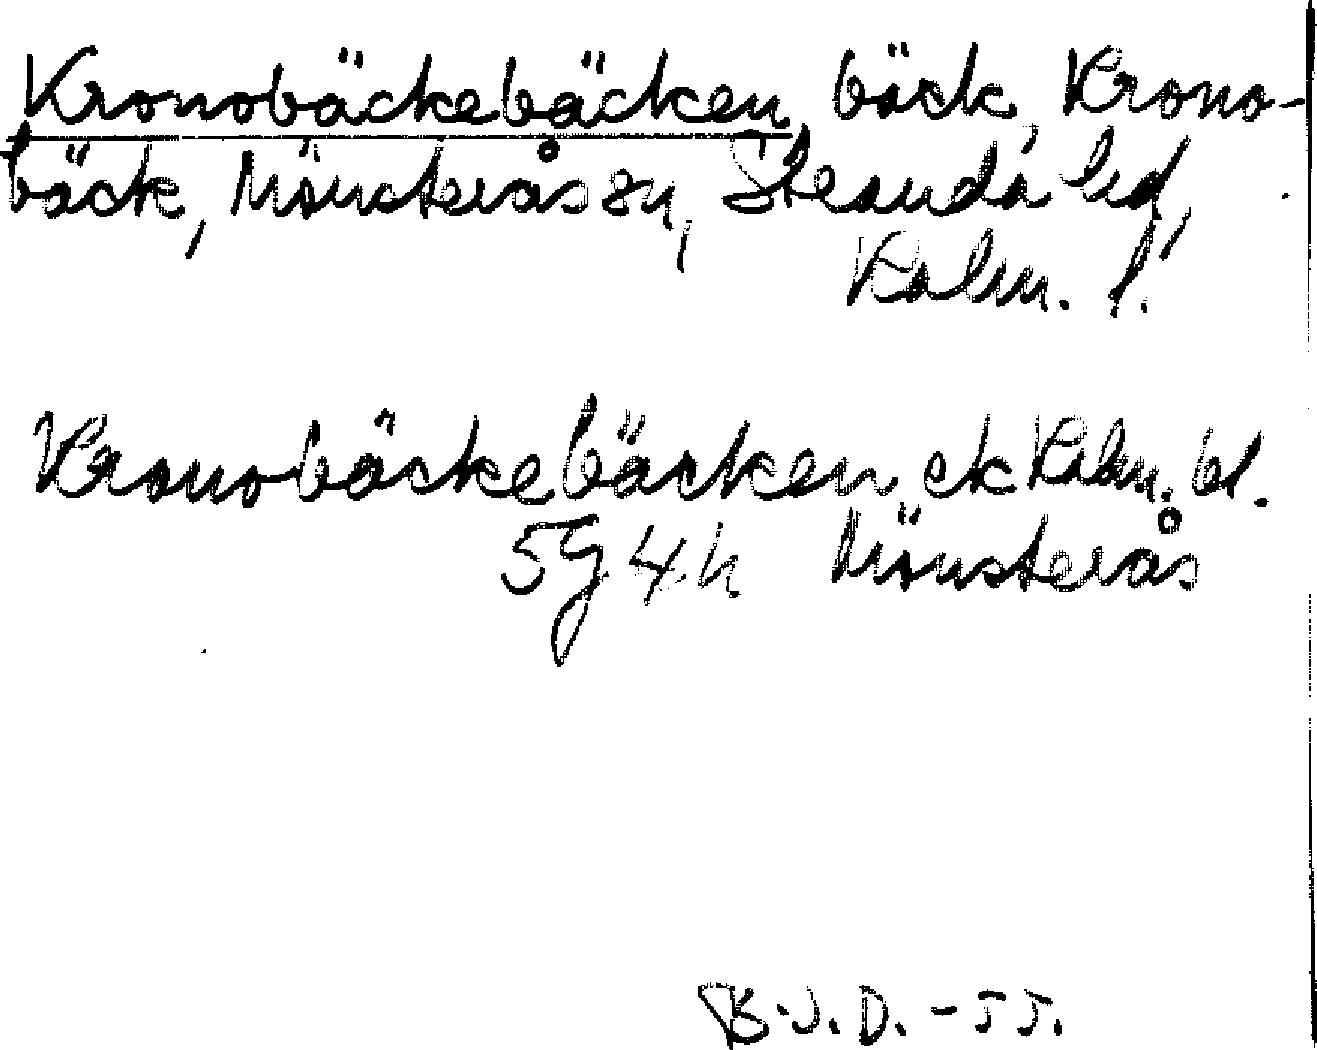 Kronobäckebäcken, bäck, Krono-
bäck, Mönsterås sn, Stranda hd,
Kalm. l.
Kronobäckebäcken ek Kalm. bl.
5g 4h Mönsterås
B.J.D. - 55.